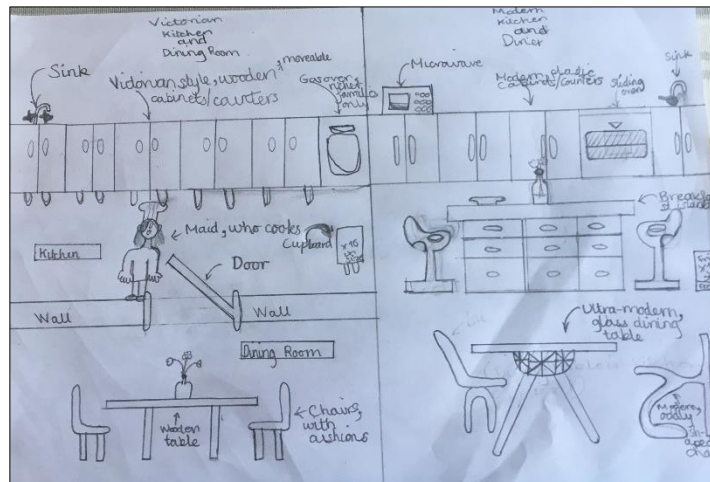 Victorian
Kitchen
and
Dining Room
Sink
Victorian style, wooden & moveable
cabinets/counters
Gas oven,
richer
families
only
Maid, who cooks
Cupboard
Kitchen
Door
Wall
Wall
Dining Room
Wooden
table
Chairs,
with
cushions
Modern
Kitchen
and
Diner
Microwave
Modern, plastic
Cabinets/Counters
Sliding
oven
Sink
Breakfa
st island
Ultra-modern,
glass dining
table
Modern,
oddly